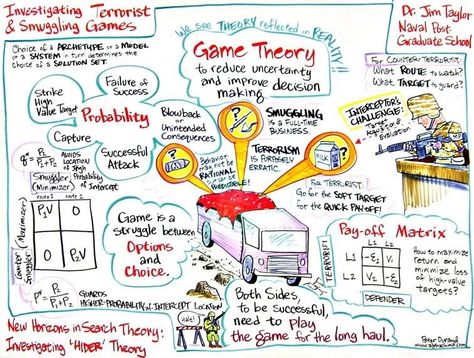 Investigating Terrorist
& Smuggling Games
Choice of a ARCHETYPE or a MODEL
or a SYSTEM in turn determines the
choice of a SOLUTION SET.
We see THEORY reflected in REALITY!!
Game Theory
to reduce uncertainty
and improve decision
making.
Dr. Jim Taylor
Naval Post-
Graduate School
For COUNTER-TERRORIST:
What ROUTE to watch?
What TARGET to guard?
INTERCEPTOR'S
CHALLENGE:
Target
Evaluation
Strike
High
Value Target
Failure of
Success
Probability
Blowback
or
Unintended
Consequences
Capture
Successful
Attack
SMUGGLING
IS A FULL-TIME
BUSINESS.
TERRORISM
IS PURPOSELY
ERRATIC.
MILK
Behavior
may not be
RATIONAL
but can be
PREDICTABLE!
q* = P2 / P1 + P2
AVOIDS
LOCATION
of High
Probability
of Intercept
Smuggler
(Minimizer)
route 1
route 2
Counter Smuggler (Maximizer)
P1V
O
O
P2V
P* = P2 / P1 + P2
GUARDS
HIGHER-PROBABILITY of INTERCEPT LOCATION
Game is a
struggle between
Options
and
Choice.
For TERRORIST
Go for the SOFT TARGET
for the QUICK PAY-OFF!
Pay-off Matrix
L1 L2
TERRORIST
L1
L2
DEFENDER
How to maximize
return and
minimize loss
of high-value
targets?
Both Sides,
to be successful,
need to play
the game for the long haul.
Halt!
New Horizons in Search Theory:
Investigating 'HIDER' Theory
Peter Durand